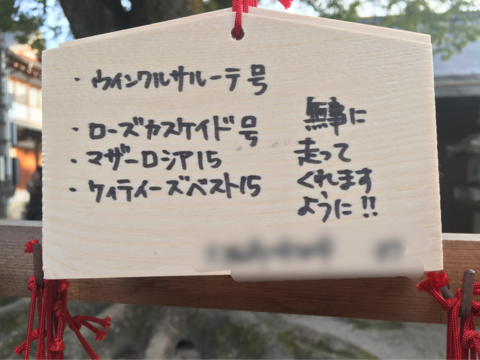 ・ウインクルサルーテ号
・ローズカスケイド号
・マザーロシア15
・ケイティーズベスト15
無事に
走って
くれます
ように!!